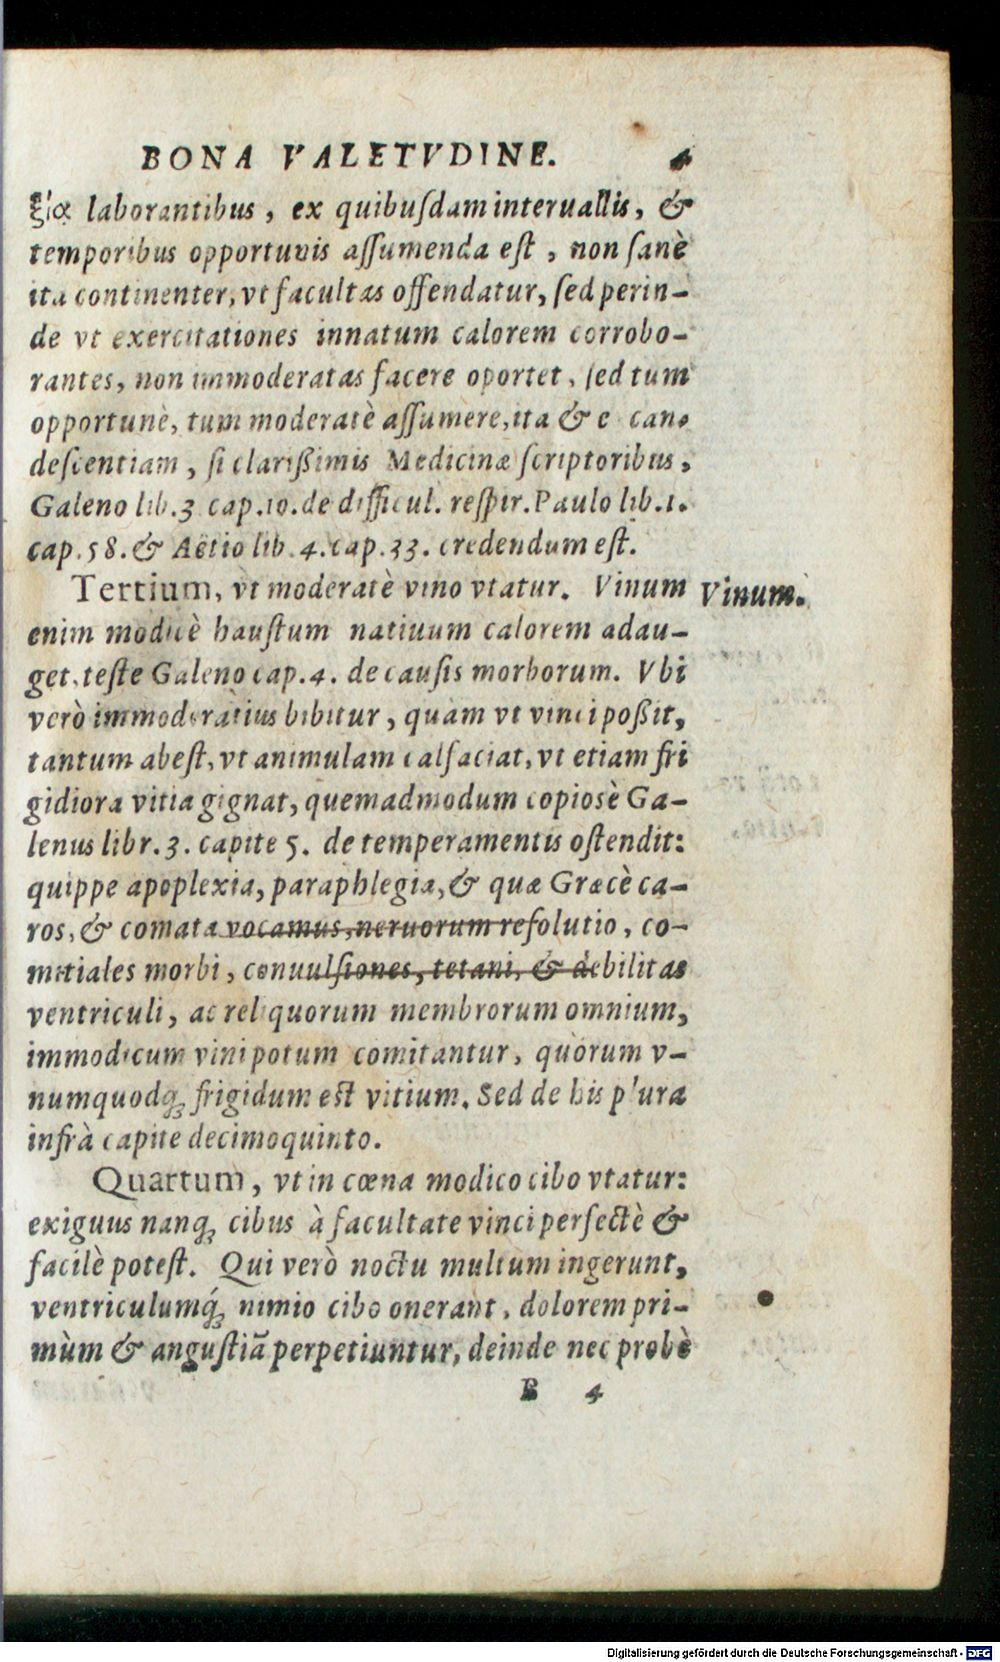 BONA VALETVDINE. 4
ξία laborantibus, ex quibuſdam interuallis, &
temporibus opportunis aſſumenda eſt, non ſanè
ita continenter, vt facultas offendatur, ſed perin-
de vt exercitationes innatum calorem corrobo-
rantes, non immoderatas facere oportet, ſed tum
opportunè, tum moderatè aſſumere, ita & e can-
deſcentiam, ſi clarißimis Medicinæ ſcriptoribus,
Galeno lib.3 cap.10. de difficul. reſpir. Paulo lib.1.
cap.58. & Aëtio lib.4. cap.33. credendum eſt.
Tertium, vt moderatè vino vtatur. Vinum
Vinum.
enim modicè hauſtum natiuum calorem adau-
get, teſte Galeno cap.4. de cauſis morborum. Vbi
verò immoderatius bibitur, quàm vt vinci poßit,
tantum abeſt, vt animulam calfaciat, vt etiam fri
gidiora vitia gignat, quemadmodum copiosè Ga-
lenus libr.3. capite 5. de temperamentis oſtendit:
quippe apoplexia, paraphlegia, & quæ Græcè ca-
ros, & comata vocamus, neruorum reſolutio, co-
mitiales morbi, conuulſiones, tetani, & debilitas
ventriculi, ac reliquorum membrorum omnium,
immodicum vini potum comitantur, quorum v-
numquodq; frigidum eſt vitium. Sed de his plura
infrà capite decimoquinto.
Quartum, vt in cœna modico cibo vtatur:
exiguus nanq; cibus à facultate vinci perfectè &
facilè poteſt. Qui verò noctu multum ingerunt,
ventriculumq́; nimio cibo onerant, dolorem pri-
mùm & anguſtiā perpetiuntur, deinde nec probè
B 4
Digitalisierung gefördert durch die Deutsche Forschungsgemeinschaft - DFG